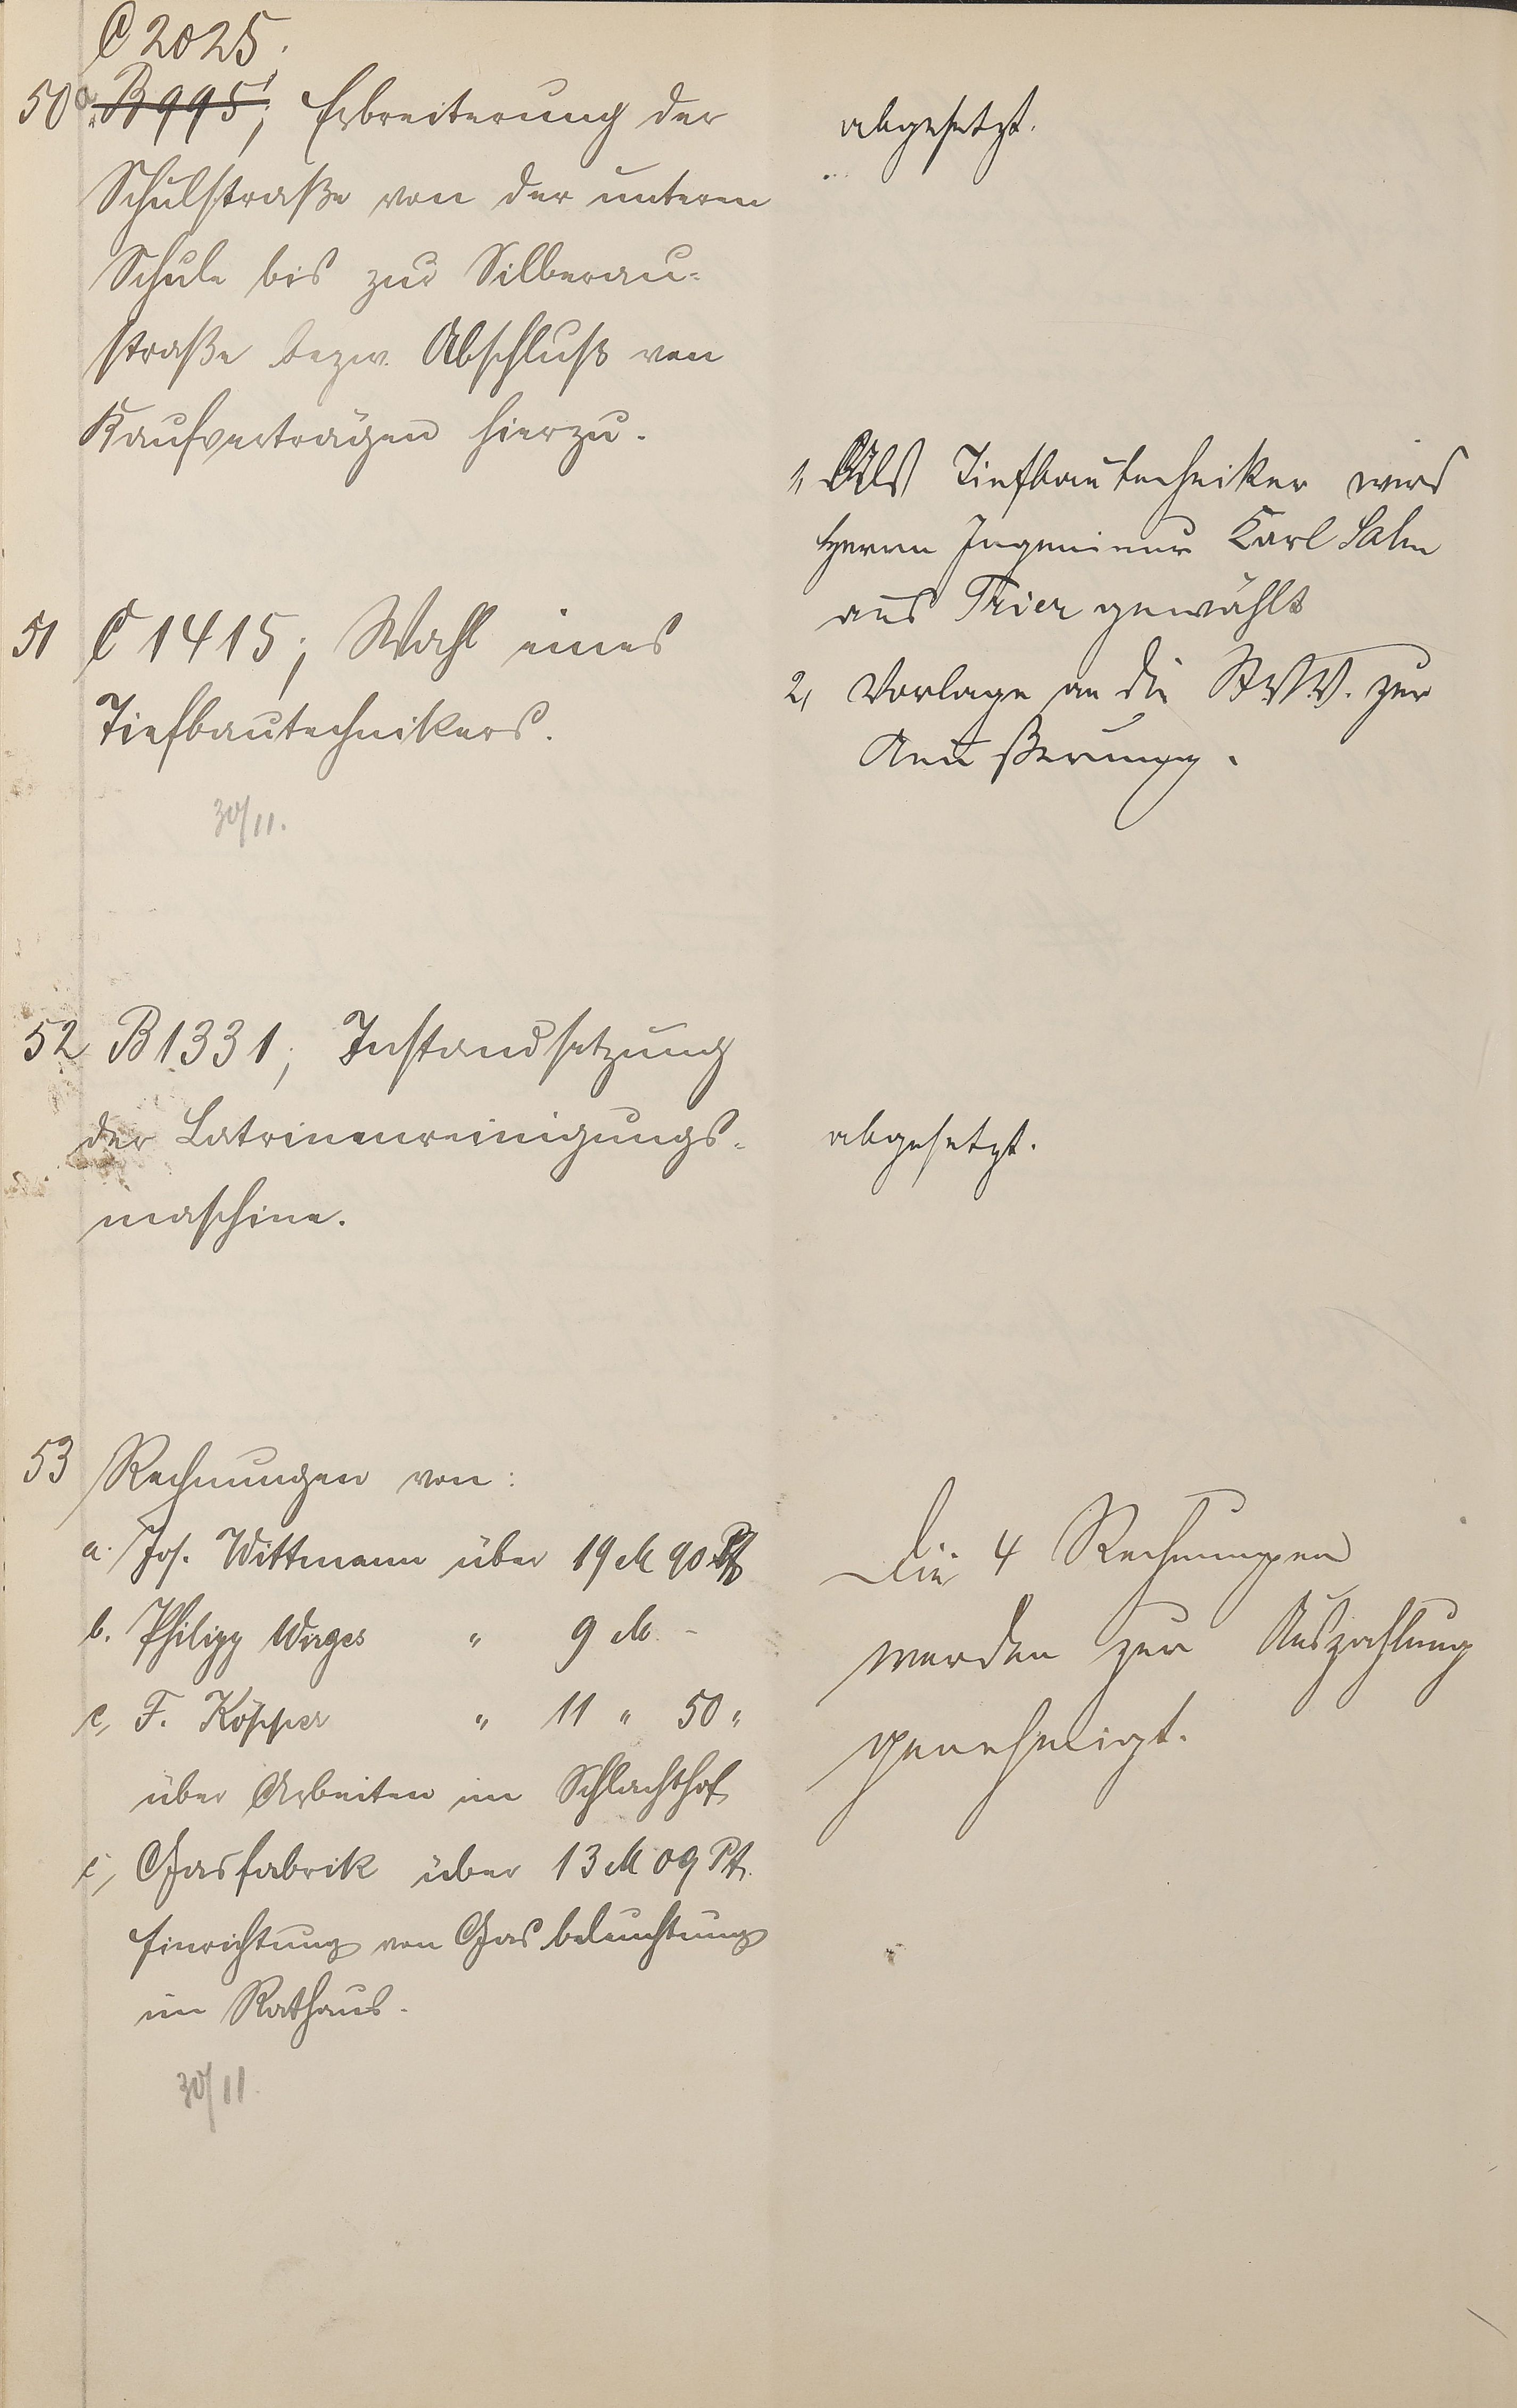 C 2025.
50a. B 995; Erbreiterung der
Schulstraße von der unteren
Schule bis zur Silberau-
straße bezw. Abschluß von
Kaufverträgen hierzu.
abgesetzt.
51 C 1415; Wahl eines
Tiefbautechnikers.
30/11.
1, Als Tiefbautechniker wird
Herrn Ingenieur Karl Salm
aus Trier gewählt
2, Vorlage an die St.V.V. zur
Aeußerung.
52 B 1331; Instandsetzung
der Latrinenreinigungs-
maschine.
abgesetzt.
53 Rechnungen von:
a. Jos. Wittmann über 19 M 90 Pf
b. Philipp Wirges " 9 M. -
c, F. Köpper " 11 " 50 "
über Arbeiten im Schlachthof
c, Gasfabrik über 13 M 09 Pf.
Einrichtung von Gasbeleuchtung
im Rathaus.
30/11.
Die 4 Rechnungen
werden zur Auszahlung
genehmigt.